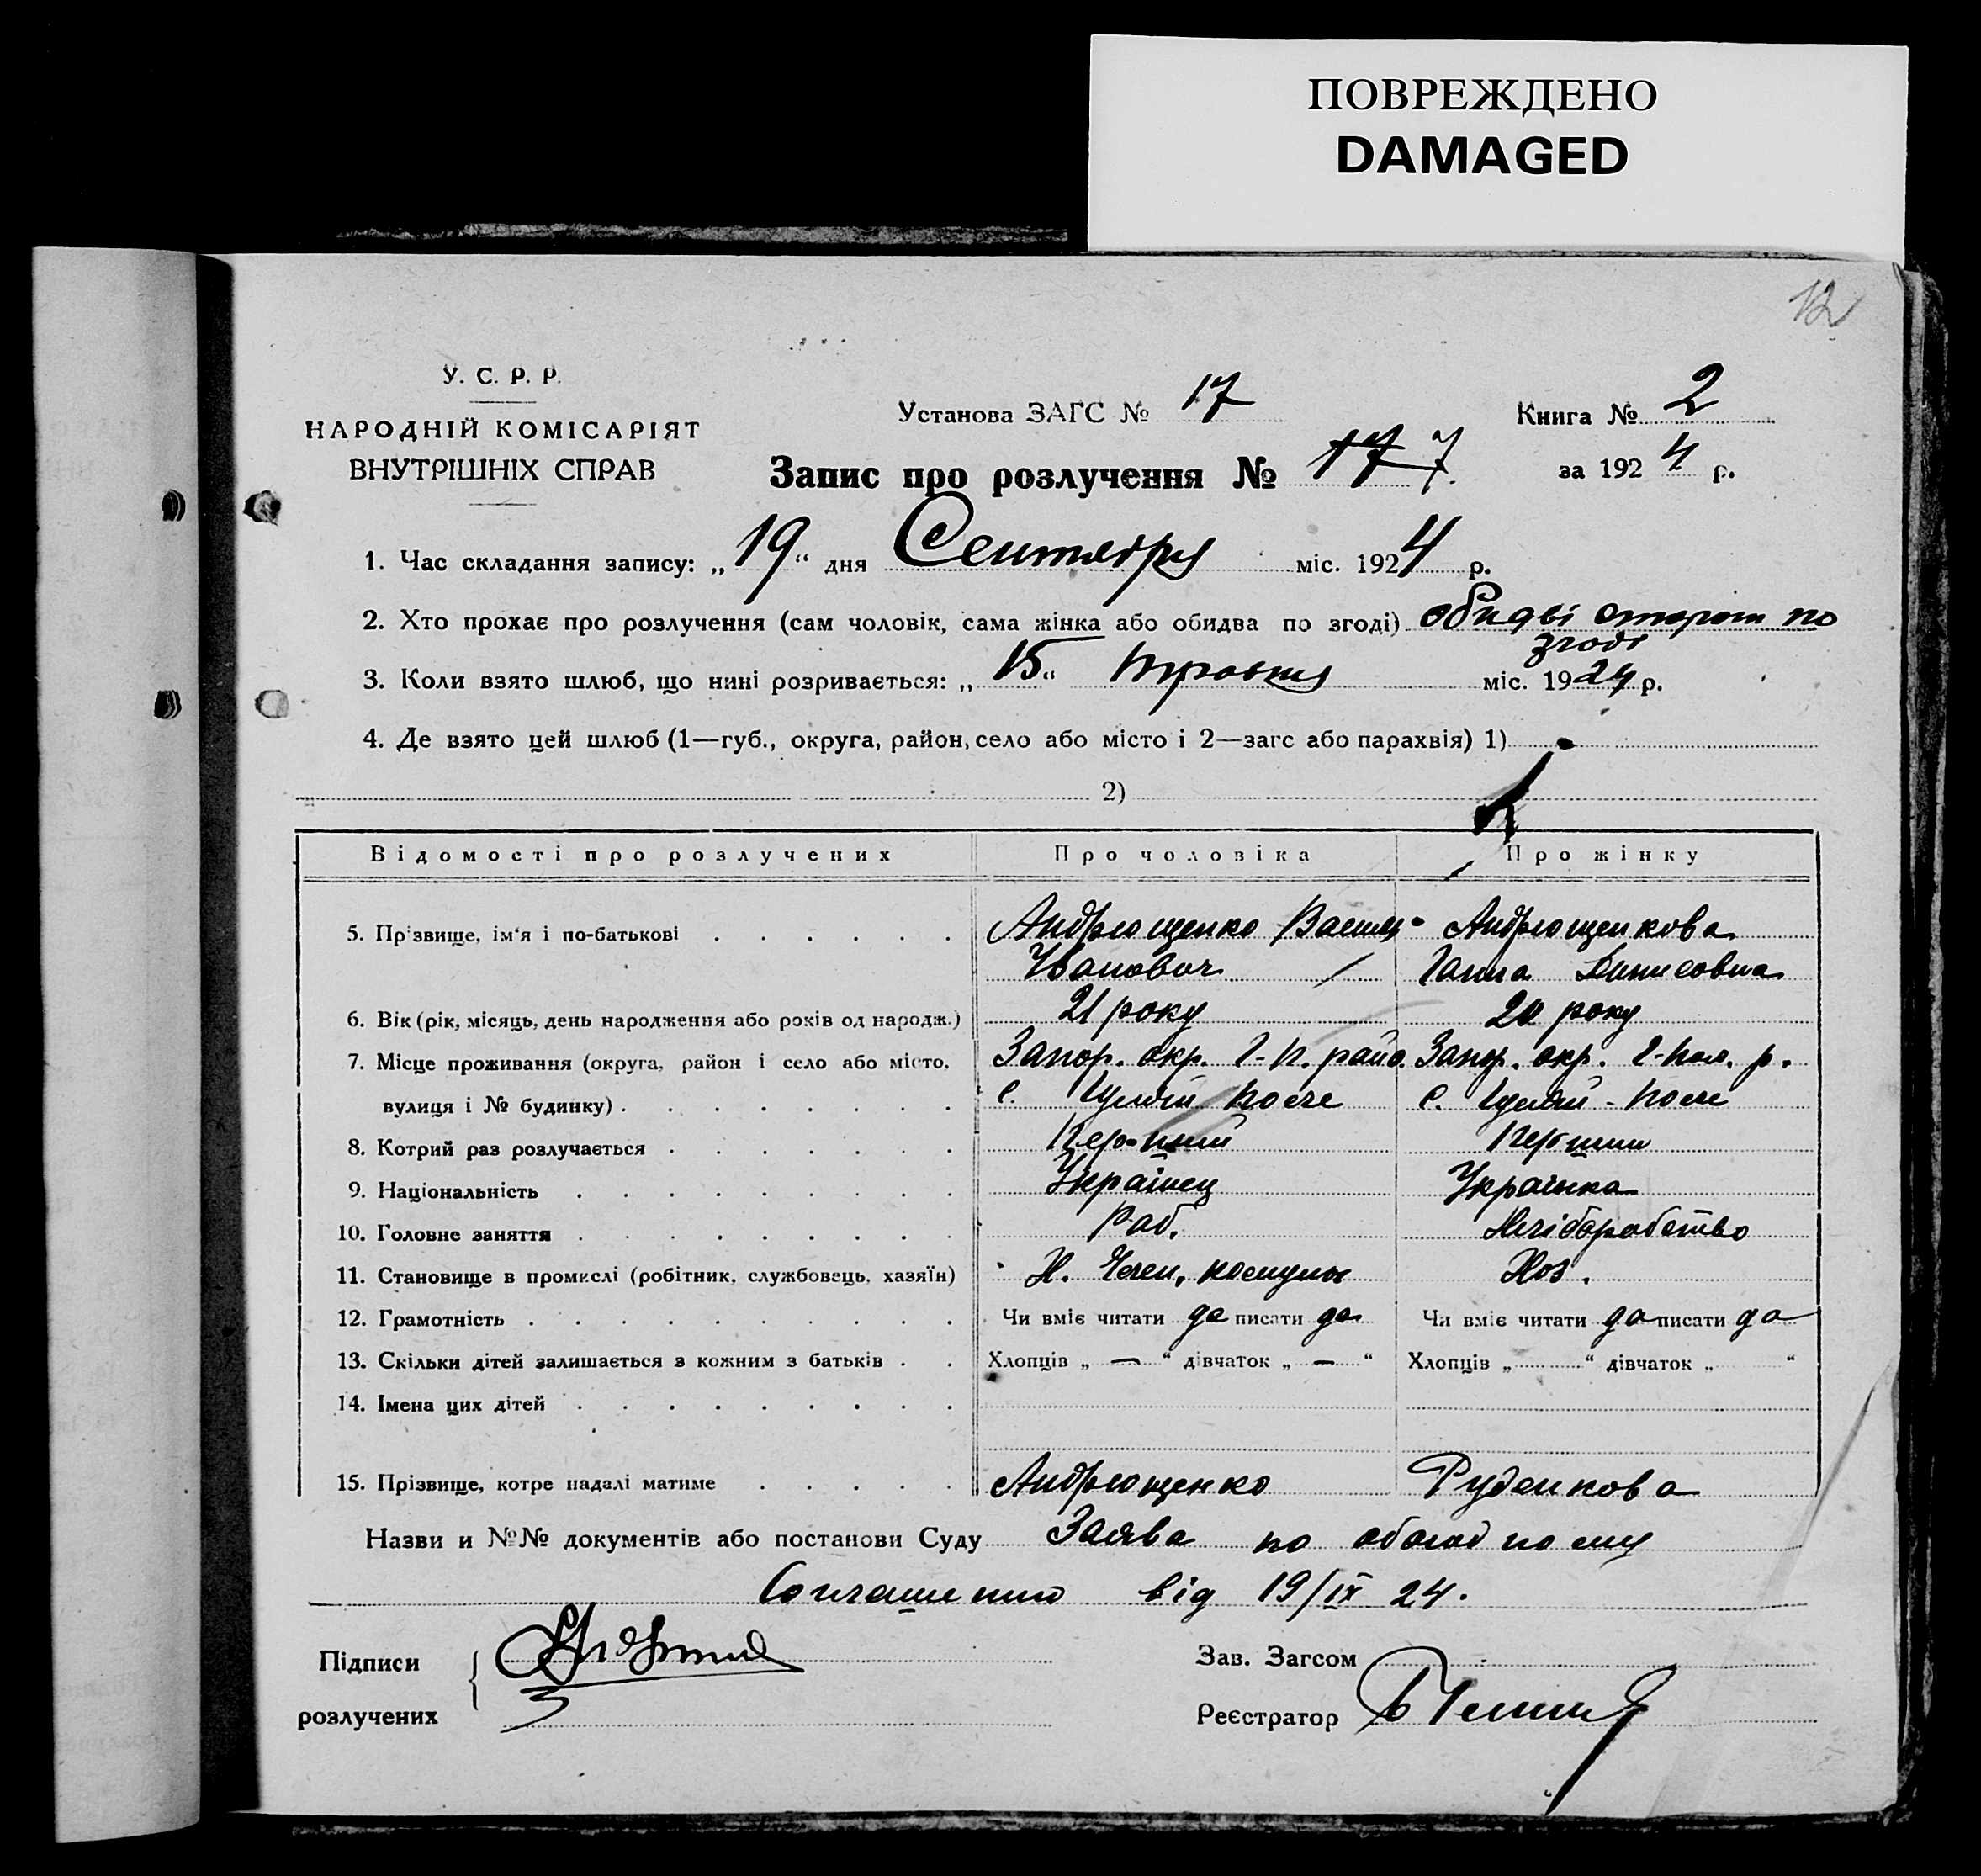 ПОВРЕЖДЕНО
DAMAGED
12
У. С. Р. Р.
НАРОДНІЙ КОМІСАРІЯТ
ВНУТРІШНІХ СПРАВ
Установа ЗАГС № 17
Книга № 2
Запис про розлучення № 17 7
за 1924 р.
1. Час складання запису: „19“ дня Сентября міс. 1924 р.
2. Хто прохає про розлучення (сам чоловік, сама жінка або обидва по згоді) обидві сторони по
згоді
3. Коли взято шлюб, що нині розривається: „15“ травня міс. 1924 р.
4. Де взято цей шлюб (1—губ., округа, район, село або місто і 2—загс або парахвія) 1)
2)
Відомості про розлучених Про чоловіка Про жінку
5. Прізвище, ім'я і по-батькові Андрющенко Василь Андрющенкова
Іванович Ганна Динисовна
6. Вік (рік, місяць, день народження або років од народж.) 21 року 20 року
7. Місце проживання (округа, район і село або місто, Запор. окр. Запор. окр.
вулиця і № будинку) с. Гуляй Поле с. Гуляй-Поле
8. Котрий раз розлучається Пер-ший Перший
9. Національність Українец Українка
10. Головне заняття Раб. Хліборобство
11. Становище в промислі (робітник, службовець, хазяїн) Хоз.
12. Грамотність Чи вміє читати да писати да Чи вміє читати да писати да
13. Скільки дітей залишається з кожним з батьків Хлопців „—“ дівчаток „—“ Хлопців „ “ дівчаток „ “
14. Імена цих дітей
15. Прізвище, котре надалі матиме Андрющенко Руденкова
Назви и №№ документів або постанови Суду Заява по обоюдному
Соглашению від 19/IX 24.
Підписи
розлучених
Зав. Загсом
Реєстратор